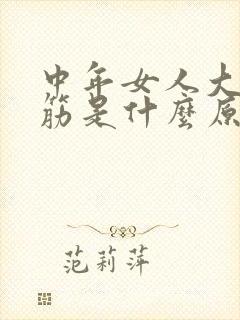 中年女人大
筋是什麼原
范莉萍